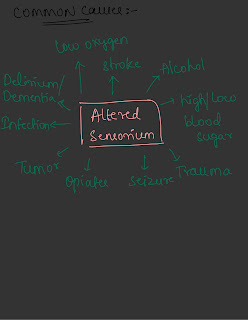 COMMON Causes:-
low oxygen
stroke
Alcohol
Delirium/
Dementia
high/Low
blood
sugar
Infection
Altered
Sensorium
Tumor
Opiates
Seizure
Trauma